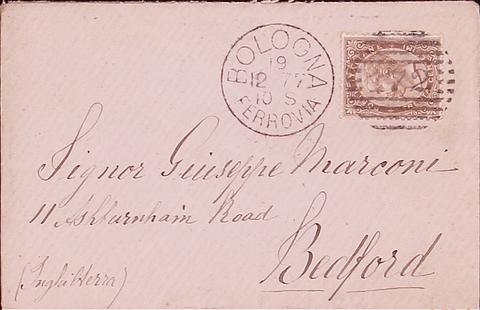 BOLOGNA
19
12 77
10 S
FERROVIA
Signor Giuseppe Marconi
11 Ashburnham Road
Bedford
(Inghilterra)